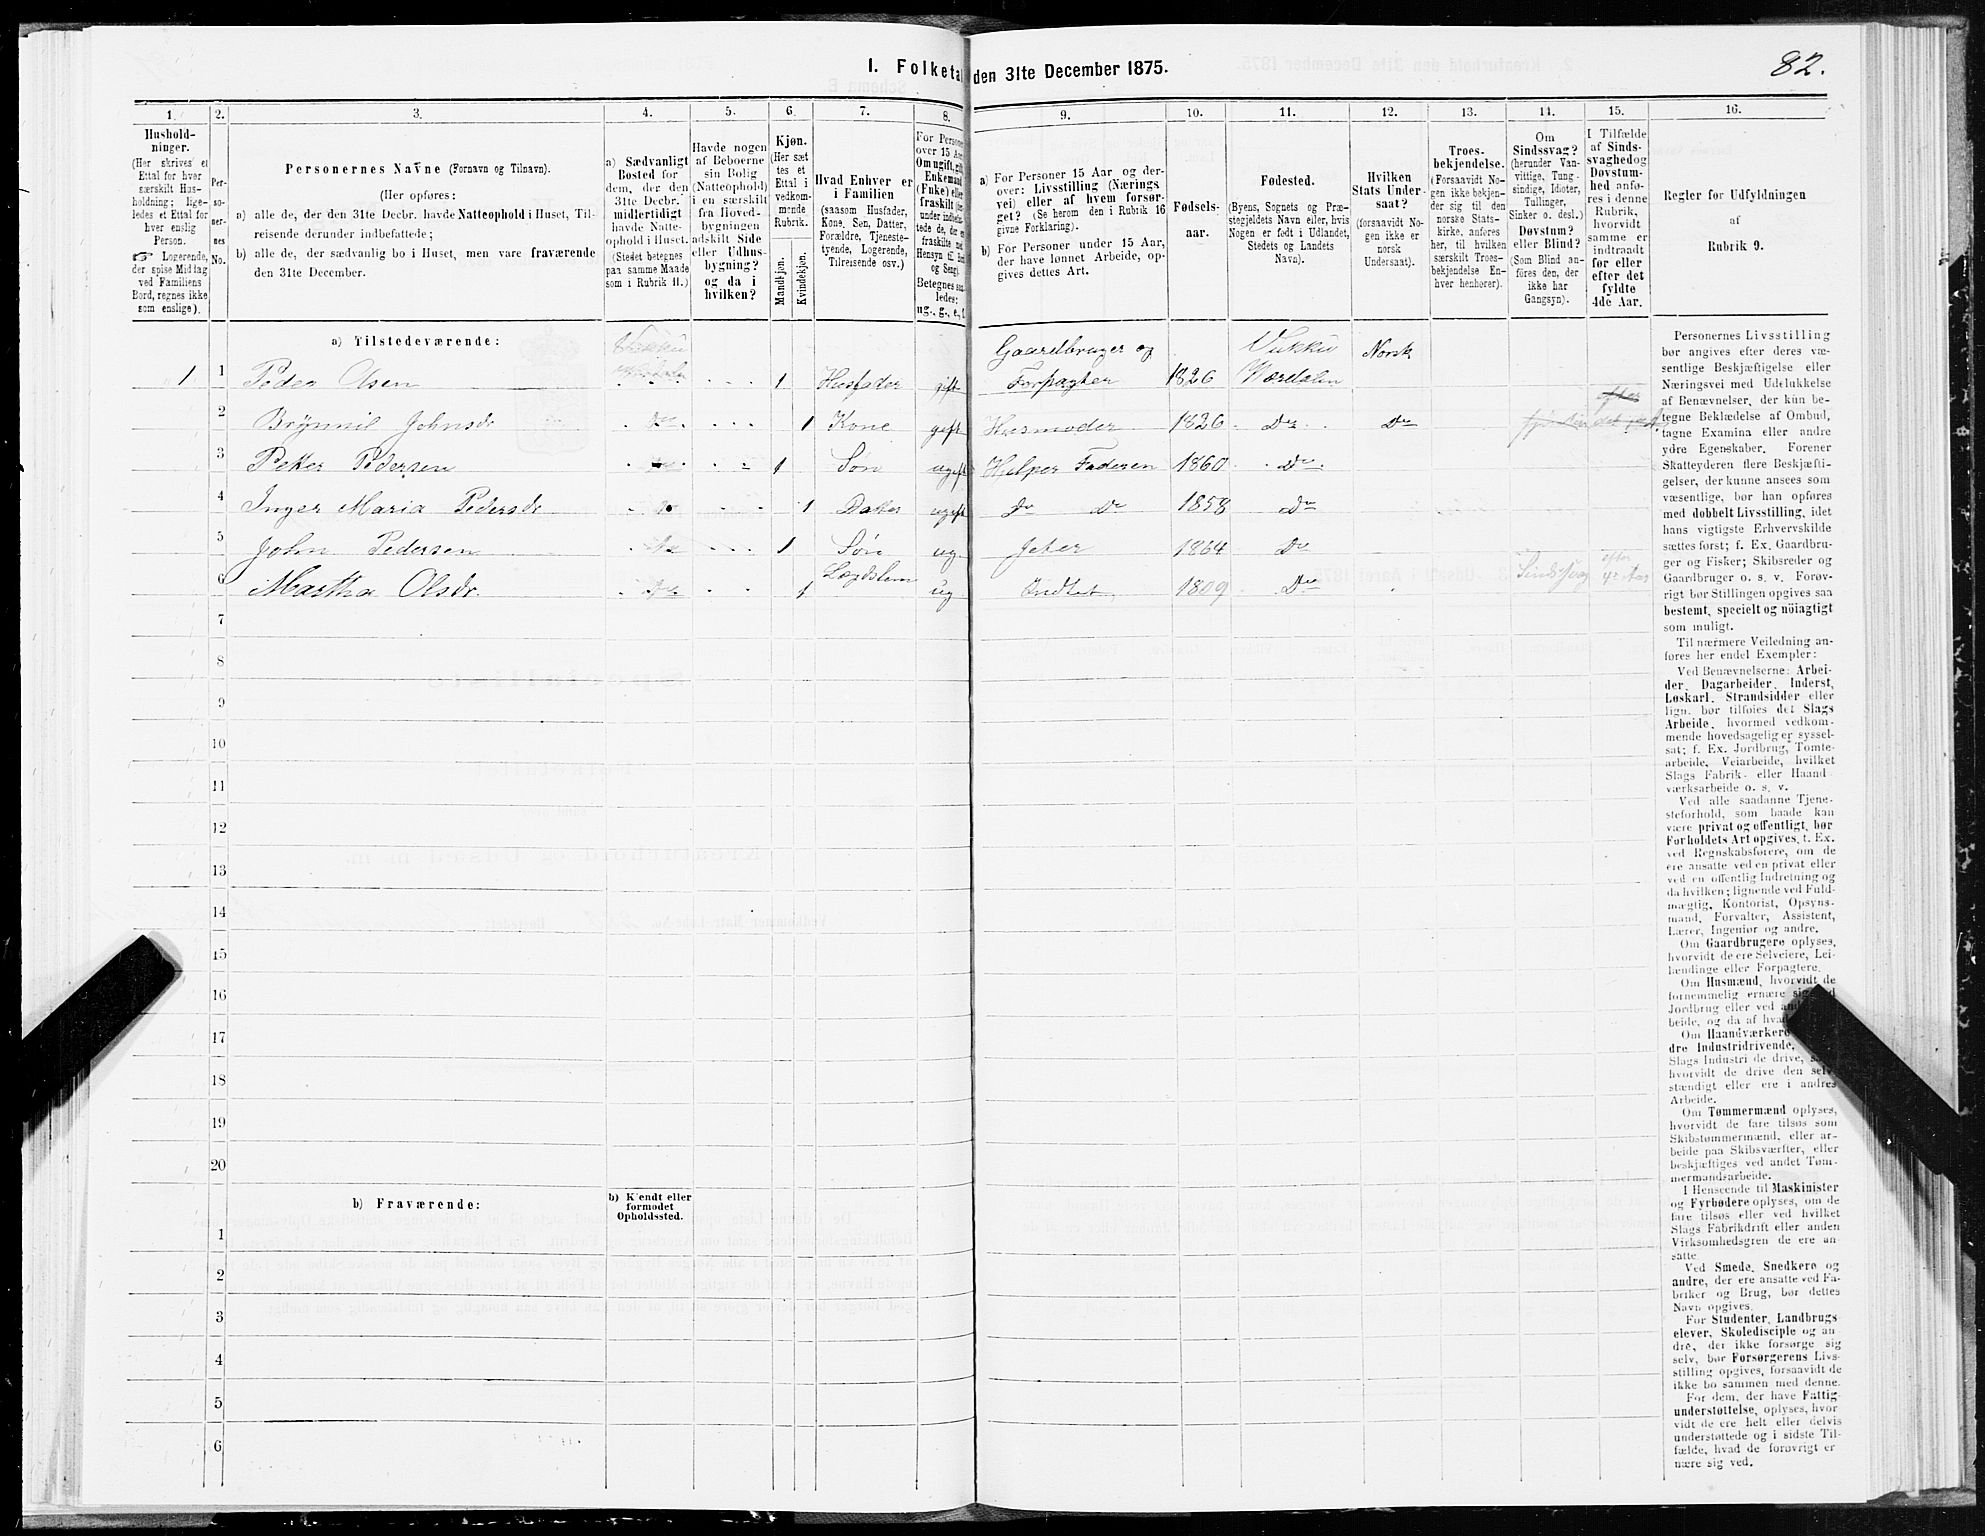 82.
I. Folketal den 31te December 1875.
1.
2.
3.
4.
5.
6.
7.
8.
9.
10.
11.
12.
13.
14.
15.
16.
Hushold-
ninger.
(Her skrives et
Ettal for hver
særskilt Hus-
holdning; lige-
ledes et Ettal for
hver enslig
Person.
☞ Logerende,
der spise Middag
ved Familiens
Bord, regnes ikke
som enslige).
Per-
so-
ner-
nes
No.
Personernes Navne (Fornavn og Tilnavn).
(Her opføres:
a) alle de, der den 31te Decbr. havde Natteophold i Huset, Til-
reisende derunder indbefattede;
b) alle de, der sædvanlig bo i Huset, men vare fraværende
den 31te December.
a) Sædvanligt
Bosted for
dem, der den
31te Decbr.
midlertidigt
havde Natte-
ophold i Huset.
(Stedet betegnes
paa samme Maade
som i Rubrik 11.)
Havde nogen
af Beboerne
sin Bolig
(Natteophold)
i en særskilt
fra Hoved-
bygningen
adskilt Side
eller Udhus-
bygning?
og da i
hvilken?
Kjøn.
(Her sæt-
tes et
Ettal i
vedkom-
mende
Rubrik.
Mandkjøn.
Kvindekjøn.
Hvad Enhver er
i Familien
(saasom Husfader,
Kone, Søn, Datter,
Forældre, Tjeneste-
tyende, Logerende,
Tilreisende osv.)
For Personer
over 15 Aar:
Om ugift, gift,
Enkemand
(Enke) eller
fraskilt
under indbefat-
tede de, der ere
fraskilte med
Hensyn til Bord
og Seng).
Betegnes saa-
ledes:
ug., g., e., f.
a) For Personer 15 Aar og der-
over: Livsstilling (Nærings
vei) eller af hvem forsør-
get? (Se herom den i Rubrik 16
givne Forklaring).
b) For Personer under 15 Aar,
der have lønnet Arbeide, op-
gives dettes Art.
Fødsels-
aar.
Fødested.
(Byens, Sognets og Præ-
stegjeldets Navn eller, hvis
Nogen er født i Udlandet,
Stedets og Landets
Navn).
Hvilken
Stats Under-
saat?
(forsaavidt No-
gen ikke er
norsk
Undersaat).
Troes-
bekjendelse.
(Forsaavidt No-
gen ikke bekjen-
der sig til den
norske Stats-
kirke, anføres
her, til hvilken
særskilt Troes-
bekjendelse En-
hver henhører).
Om
Sindssvag?
(herunder Van-
vittige, Tung-
sindige, Idioter,
Tullinger,
Sinker o. desl.)
Døvstum?
eller Blind?
(Som Blind an-
føres den, der
ikke har
Gangsyn).
I Tilfælde
af Sinds-
svaghed og
Døvstum-
hed anfø-
res i denne
Rubrik,
hvorvidt
samme er
indtraadt
før eller
efter det
fyldte
4de Aar.
Regler for Udfyldningen
af
Rubrik 9.
a) Tilstedeværende:
1 1 Peder Olsen Vukku Værdalen 1 Husfader gift Gaardbruger og Forpagter 1826 Vukku Værdalen Norsk
2 Brynnil Johnsdr Do 1 Kone gift Husmoder 1826 Do Do efter
3 Petter Pedersen Do 1 Søn ugift Hjelper Faderen 1860 Do
4 Inger Maria Pedersdr Do 1 Datter ugift Do Do 1858 Do
5 John Pedersen Do 1 Søn ug. Jeter 1864 Do
6 Martha Olsdr. Do 1 Lægdslem ug Indlet 1809 Do Sindssvag efter 4de Aar
7
8
9
10
11
12
13
14
15
16
17
18
19
20
b) Fraværende:
b) Kjendt eller
formodet
Opholdssted.
1
2
3
4
5
6
Personernes Livsstilling
bør angives efter deres væ-
sentlige Beskjæftigelse eller
Næringsvei med Udelukkelse
af Benævnelser, der kun be-
tegne Beklædelse af Ombud,
tagne Examina eller andre
ydre Egenskaber. Forener
Skatteyderen flere Beskjæfti-
gelser, der kunne ansees som
væsentlige, bør han opføres
med dobbelt Livsstilling, idet
hans vigtigste Erhvervskilde
sættes først; f. Ex. Gaardbru-
ger og Fisker; Skibsreder og
Gaardbruger o. s. v. Forøv-
rigt bør Stillingen opgives saa
bestemt, specielt og nöiagtigt
som muligt.
Til nærmere Veiledning an-
føres her endel Exempler:
Ved Benævnelserne: Arbei-
der, Dagarbeider, Inderst,
Løskarl, Strandsidder eller
lign. bør tilføies det Slags
Arbeide, hvormed vedkom-
mende hovedsagelig er syssel-
sat; f. Ex. Jordbrug, Tomte-
arbeide, Veiarbeide, hvilket
Slags Fabrik- eller Haand-
værksarbeide o. s. v.
Ved alle saadanne Tjene-
steforhold, som baade kan
være privat og offentligt, bør
Forholdets Art opgives, f. Ex.
ved Regnskabsførere, om de
ere ansatte ved en privat eller
ved en offentlig Indretning og
da hvilken; lignende ved Fuld-
mægtig, Kontorist, Opsyns-
mand, Forvalter, Assistent,
Lærer, Ingeniør og andre.
Om Gaardbrugere oplyses,
hvorvidt de ere Selveiere, Lei-
lændinge eller Forpagtere.
Om Husmænd, hvorvidt de
fornemmelig ernære sig
Jordbrug eller ved
beide, og da af
Om Haandværkere
dre Industridrivende,
Slags Industri de drive,
hvorvidt de drive den selv-
stændigt eller ere i andres
Arbeide.
Om Tømmermænd oplyses,
hvorvidt de fare tilsøs som
Skibstømmermænd, eller ar-
beide paa Skibsværfter, eller
beskjæftiges ved andet Tøm-
mermandsarbeide.
I Henseende til Maskinister
og Fyrbødere oplyses, om de
fare tilsøs eller ved hvilket
Slags Fabrikdrift eller anden
Virksomhedsgren de ere an-
satte.
Ved Smede, Snedkere og
andre, der ere ansatte ved Fa-
briker og Brug, bør dettes
Navn opgives.
For Studenter, Landbrugs
elever, Skoledisciple og an-
dre, der ikke forsørge sig
selv, bør Forsørgerens Livs-
stilling opgives, forsaavidt de
ikke bo sammen med denne.
For dem, der have Fattig-
understøttelse, oplyses, hvor
vidt de ere helt eller delvis
understøttede og i sidste Til-
fælde, hvad de forøvrigt er
nære sig ved.